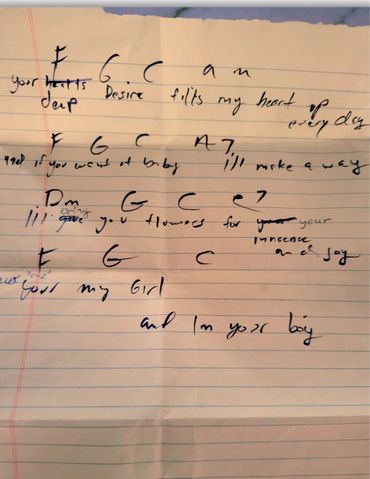 F G C am
your hearts Desire fills my heart up
deep every day
F G C A7
and if you want it baby i'll make a way
Dm G C e7
bring
I'll give you flowers for your your
innocence
F G C and Joy
your my Girl
and Im your boy